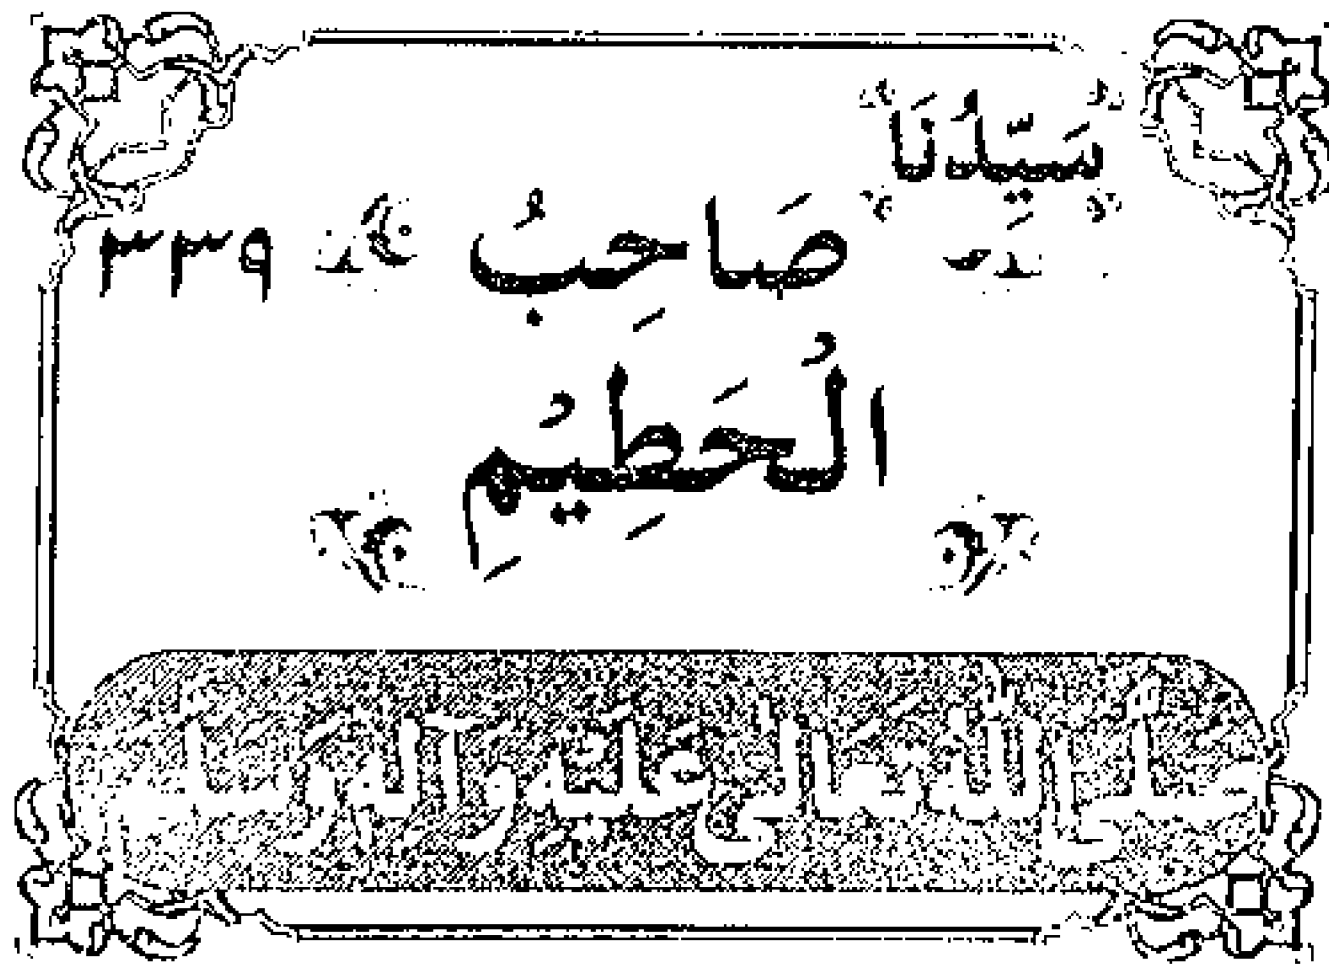 سَيِّدُنَا
صَاحِبُ ٣٣٩
الْحَطِيْمِ
صلی الله تعالى عليه وآله وسلم